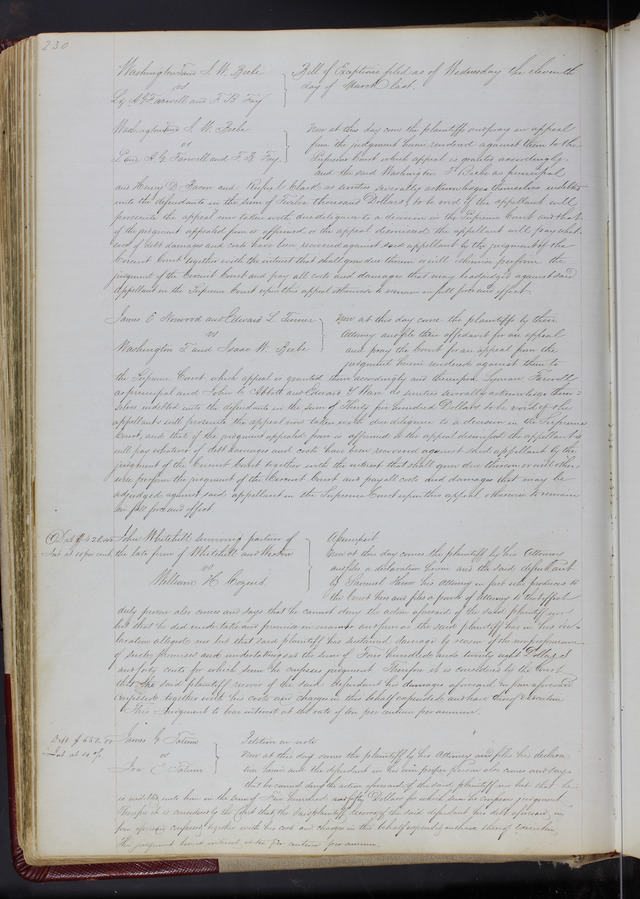 230
Washington T and I. W. Beebe
vs
L. G. Farwell and F. B. Fay
Bill of Exceptions filed as of Wednesday the eleventh
day of March last.
Washington T and I. W. Beebe
vs
L. G. Farwell and F. B. Fay
Now at this day come the plaintiffs and pray an appeal
from the judgment herein rendered against them to the
Supreme Court which appeal is granted accordingly
and the said Washington T. Beebe as principal
and Henry D. Bacon and Rufus J. as sureties severally acknowledges themselves indebted
unto the defendants in the sum of Twelve thousand Dollars, to be void if the appellant will
prosecute the appeal now taken with due diligence to a decision in the Supreme Court and that
if the judgment appealed from is affirmed or the appeal dismissed the appellant will pay what
ever of debt damages and costs have been recovered against said appellant by the judgment of the
Circuit Court together with the interest that shall grow due thereon or will otherwise perform the
judgment of the Circuit Court and pay all costs and damages that may be adjudged against said
Appellant in the Supreme Court upon this appeal otherwise to remain in full force and effect
James O Norwood and Edward L Turner
vs
Washington T and Isaac W. Beebe
Now at this day come the plaintiffs by their
Attorney and file their affidavit for an appeal
and pray the Court for an appeal from the
judgment herein rendered against them to
the Supreme Court which appeal is granted them accordingly and thereupon Lyman Farwell
as principal and John C Abbott and Edward Y Ware as sureties severally acknowledge them=
selves indebted unto the defendants in the sum of Thirty five hundred Dollars to be void if the
appellant will prosecute the appeal now taken with due diligence to a decision in the Supreme
Court, and that if the judgment appealed from is affirmed or the appeal dismissed the appellant
will pay whatever of debt damages and costs have been recovered against said appellant by the
judgment of the Circuit Court together with the interest that shall grow due thereon or will other=
wise perform the judgment of the Circuit Court and pay all costs and damages that may be
adjudged against said appellant in the Supreme Court upon this appeal otherwise to remain
in full force and effect
$428.40
Int at 10 per cent
John Whitehill surviving partner of
the late firm of Whitehill and
vs
William H.
Assumpsit
Now at this day comes the plaintiff by his Attorney
and files a declaration herein and the said defendant
by Samuel his Attorney in fact who produces to
the Court here and files a power of Attorney to that effect
duly proven also comes and says that he cannot deny the action aforesaid of the said plaintiff nor
but that he did undertake and promise in manner and form as the said plaintiff has in his dec
laration alleged nor but that said plaintiff has sustained damage by reason of the nonperformance
of such promises and undertakings to the sum of Four hundred and twenty eight Dollars
and forty cents for which sum he confesses judgment Therefore it is considered by the Court
that the said plaintiff recover of the said defendant his damages aforesaid in form aforesaid
confessed together with his costs and charges in this behalf expended and have thereof execution
This Judgment to bear interest at the rate of ten per centum per annum.
Debt $550.00
Int at 10 %
James G Tatum
vs
Ira C Tatum
Petition on note
Now at this day comes the plaintiff by his Attorney and files his declara
tion herein and the defendant in his own proper person also comes and says
that he cannot deny the action aforesaid of the said plaintiff nor but that he
is indebted unto him in the sum of Five hundred and fifty Dollars for which sum he confesses judgment
Therefore it is considered by the Court that the said plaintiff recover of the said defendant his debt aforesaid in
form aforesaid confessed together with his costs and charges in this behalf expended and have thereof execution
This judgment bears interest at ten per centum per annum